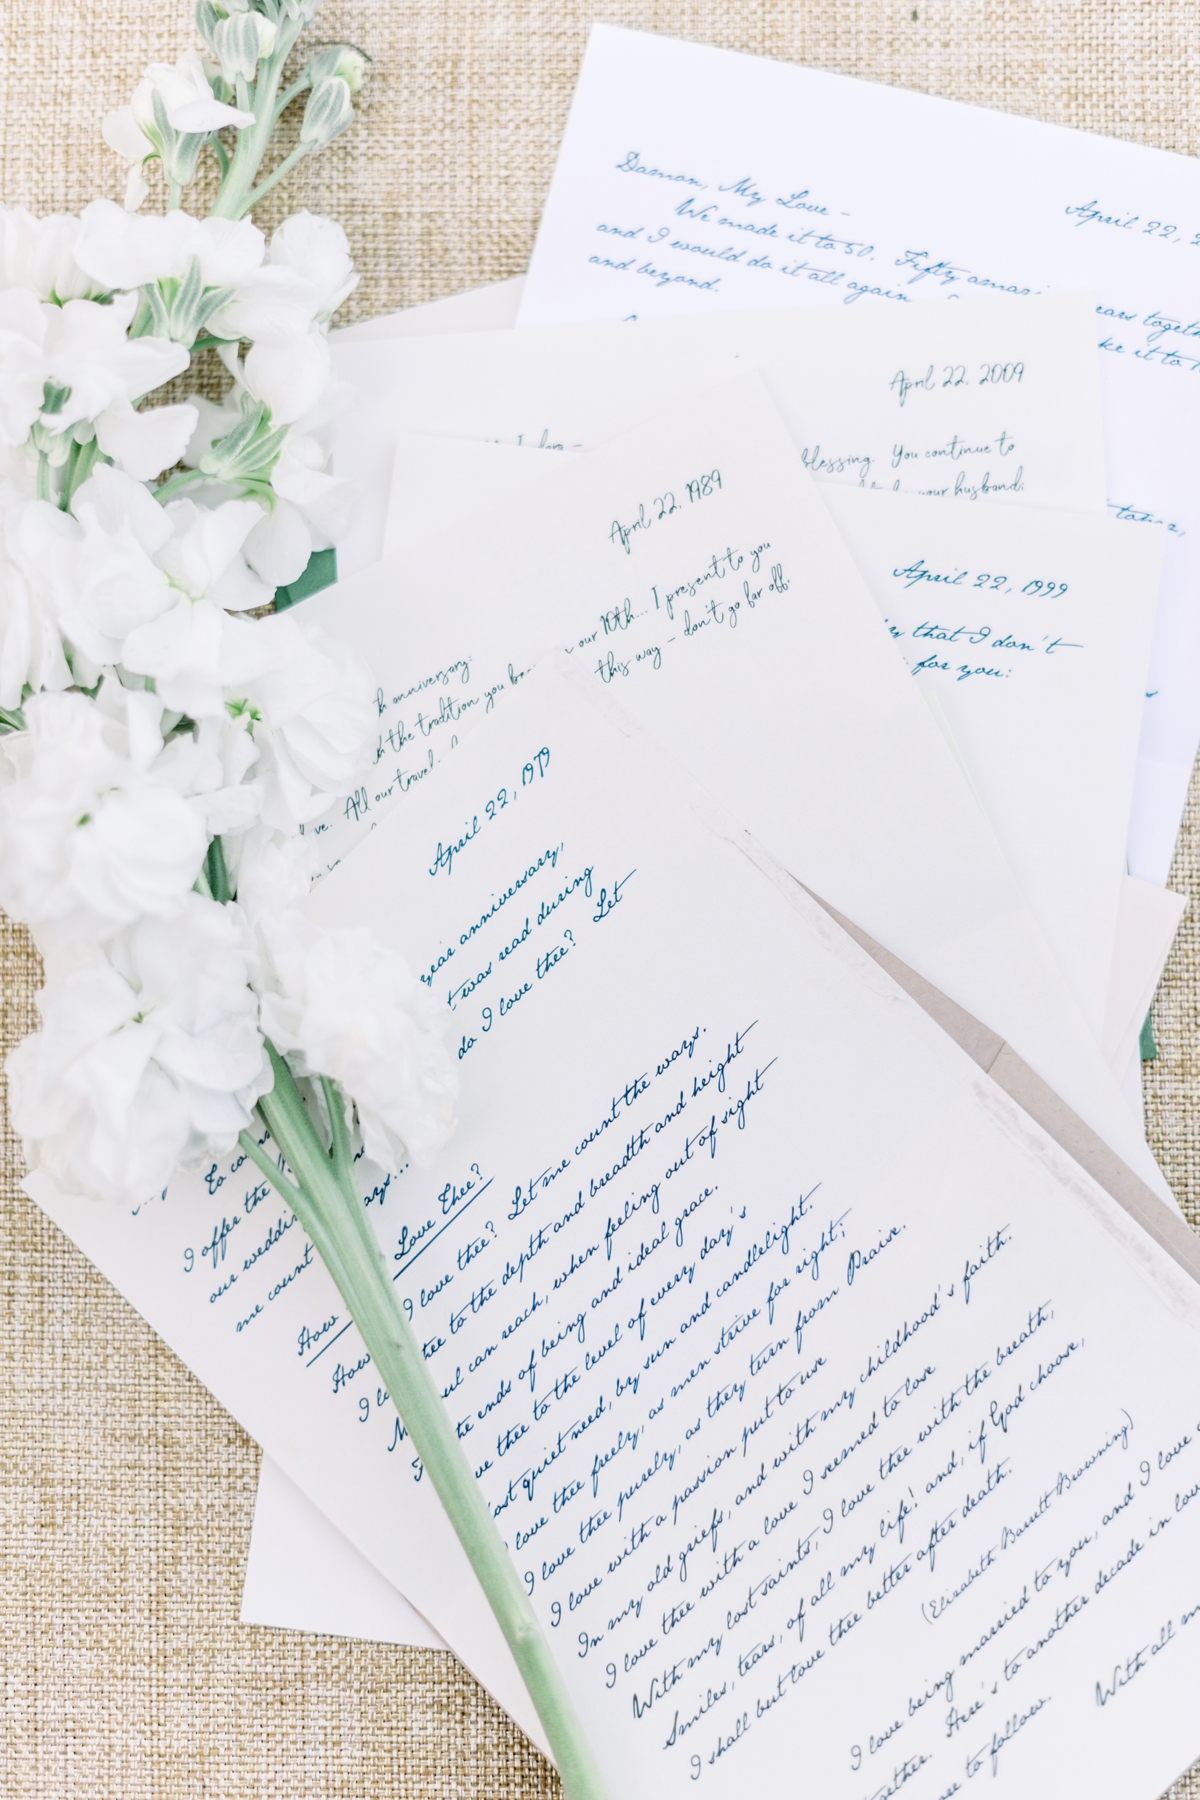 Damon, My Love -
April 22, 2
We made it to 50. Fifty
years together
and I would do it all again
make it to
and beyond.
April 22, 2009
blessing. You continue to
your husband:
April 22, 1999
that I don't
for you:
April 22, 1989
our 10th... I present to you
this way - don't go far off.
anniversary:
the tradition you
All our travel.
April 22, 1979
year anniversary,
was read during
do I love thee? Let
To
I offer the
our wedding
me count ways...
How Love Thee?
How I love thee? Let me count the ways.
I thee to the depth and breadth and height
can reach, when feeling out of sight
the ends of being and ideal grace.
thee to the level of every day's
quiet need, by sun and candlelight.
I love thee freely, as men strive for right;
I love thee purely, as they turn from Praise.
I love with a passion put to use
In my old griefs, and with my childhood's faith.
I love thee with a love I seemed to lose
With my lost saints, I love thee with the breath,
Smiles, tears, of all my life! and, if God choose,
I shall but love thee better after death.
(Elizabeth Barrett Browning)
I love being married to you, and I love
Here's to another decade in
to follow.
With all